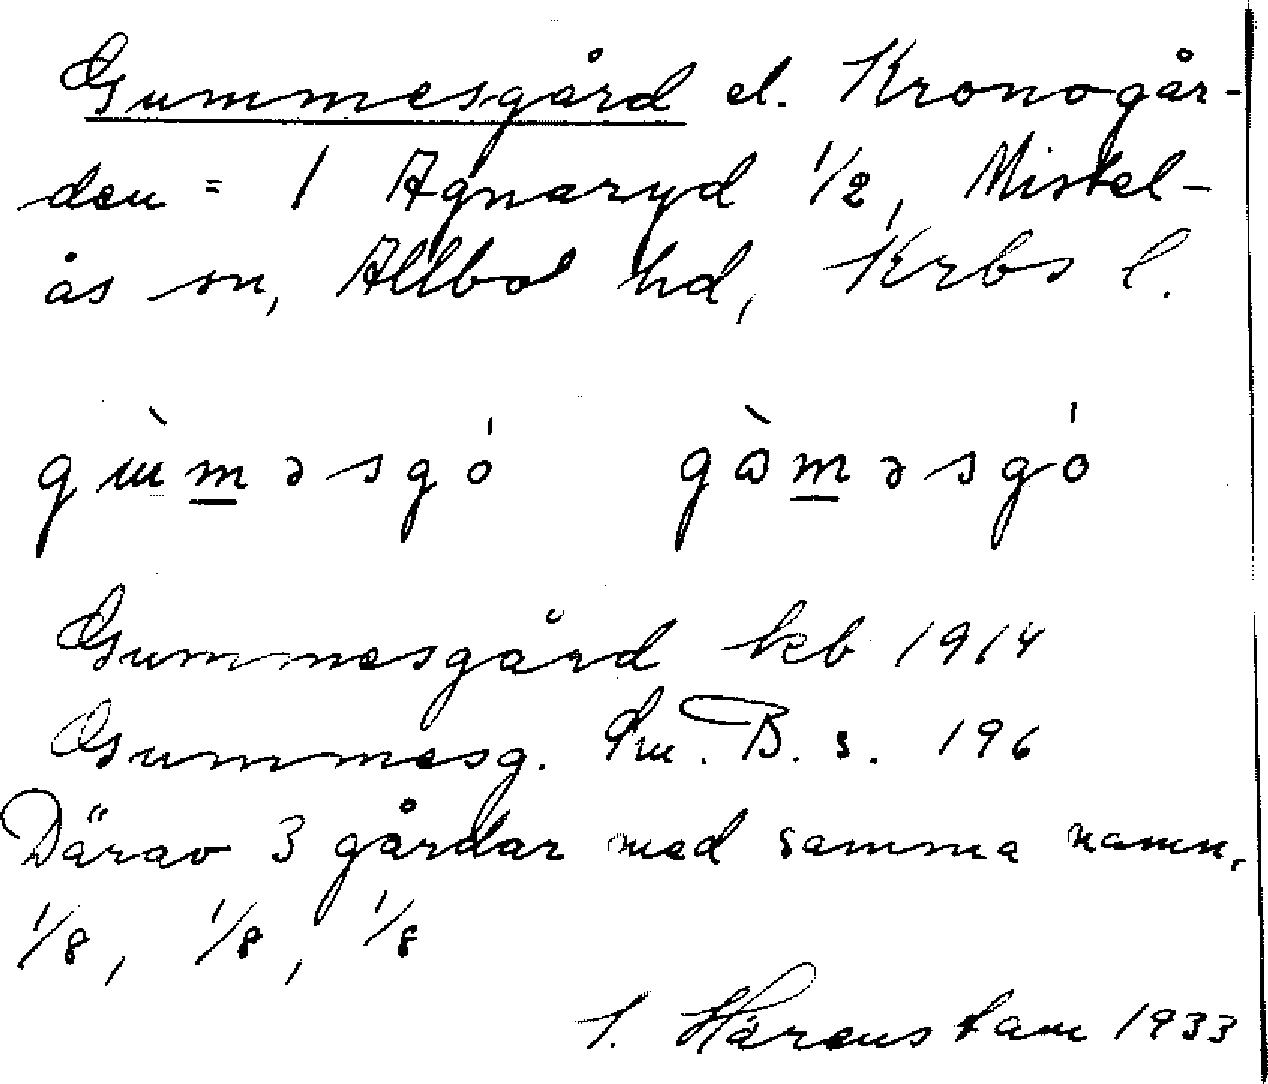 Gummesgård el. Kronogår-
den = 1 Agnaryd 1/2, Mistel-
ås sn, Allbo hd, Krbs l.
gɯ̀m̲əsgó gɷ̀m̲əsgó
Gummesgård kb 1914
Gummesg. B. s. 196
Därav 3 gårdar med samma namn.
1/8, 1/8, 1/8
Härenstam 1933